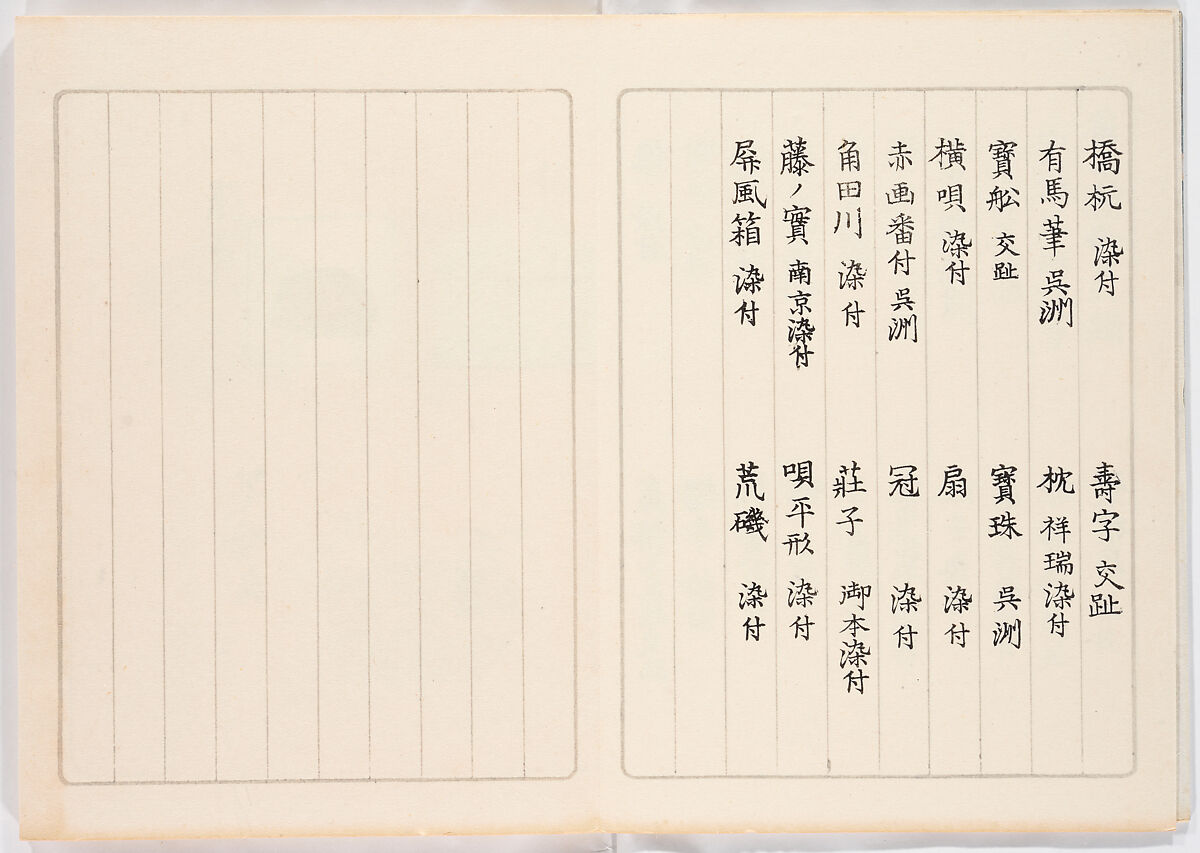 橋杬 染付
有馬筆 呉洲
寶舩 交趾
横唄 染付
赤画番付 呉洲
角田川 染付
藤ノ實 南京染付
屏風箱 染付
壽字 交趾
枕 祥瑞染付
寶珠 呉洲
扇 染付
冠 染付
莊子 御本染付
唄平形 染付
荒磯 染付